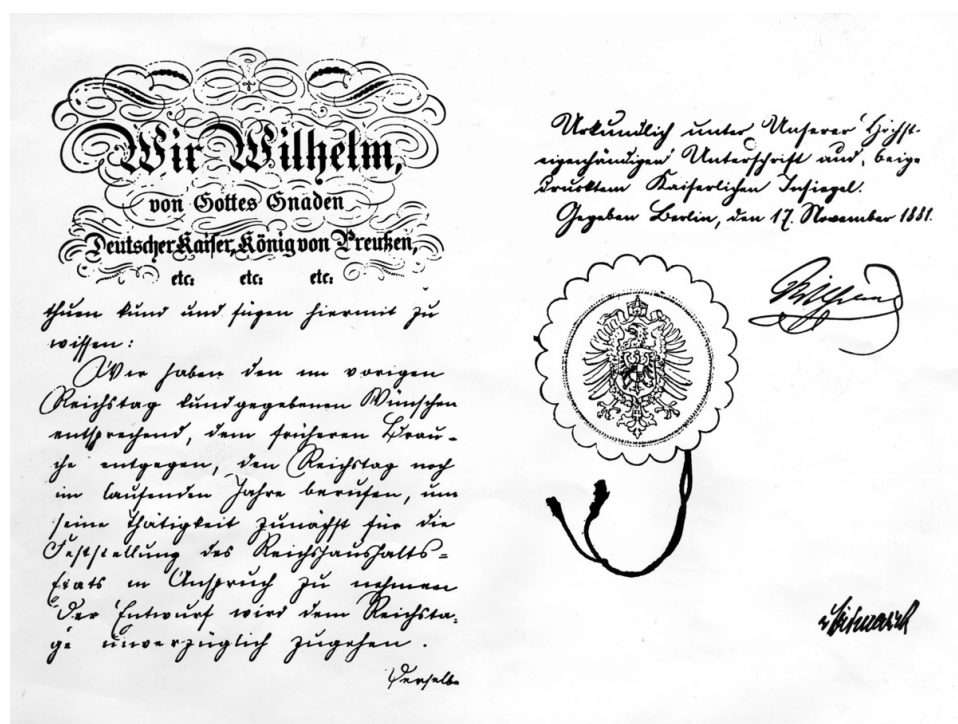 Wir Wilhelm,
von Gottes Gnaden
Deutscher Kaiser, König von Preußen,
etc: etc: etc:
thuen kund und fügen hiermit zu
wissen:
Wir haben den im vorigen
Reichstag kundgegebenen Wünschen
entsprechend, dem früheren Brau-
che entgegen, den Reichstag noch
im laufenden Jahre berufen, um
seine Thätigkeit zunächst für die
Feststellung des Reichshaushalts-
Etats in Anspruch zu nehmen
Der Entwurf wird dem Reichsta-
ge unverzüglich zugehen.
Derselbe
Urkundlich unter Unserer Höchst-
eigenhändigen Unterschrift und beige-
drucktem Kaiserlichen Insiegel.
Gegeben Berlin, den 17. November 1881.
Wilhelm
v Bismarck